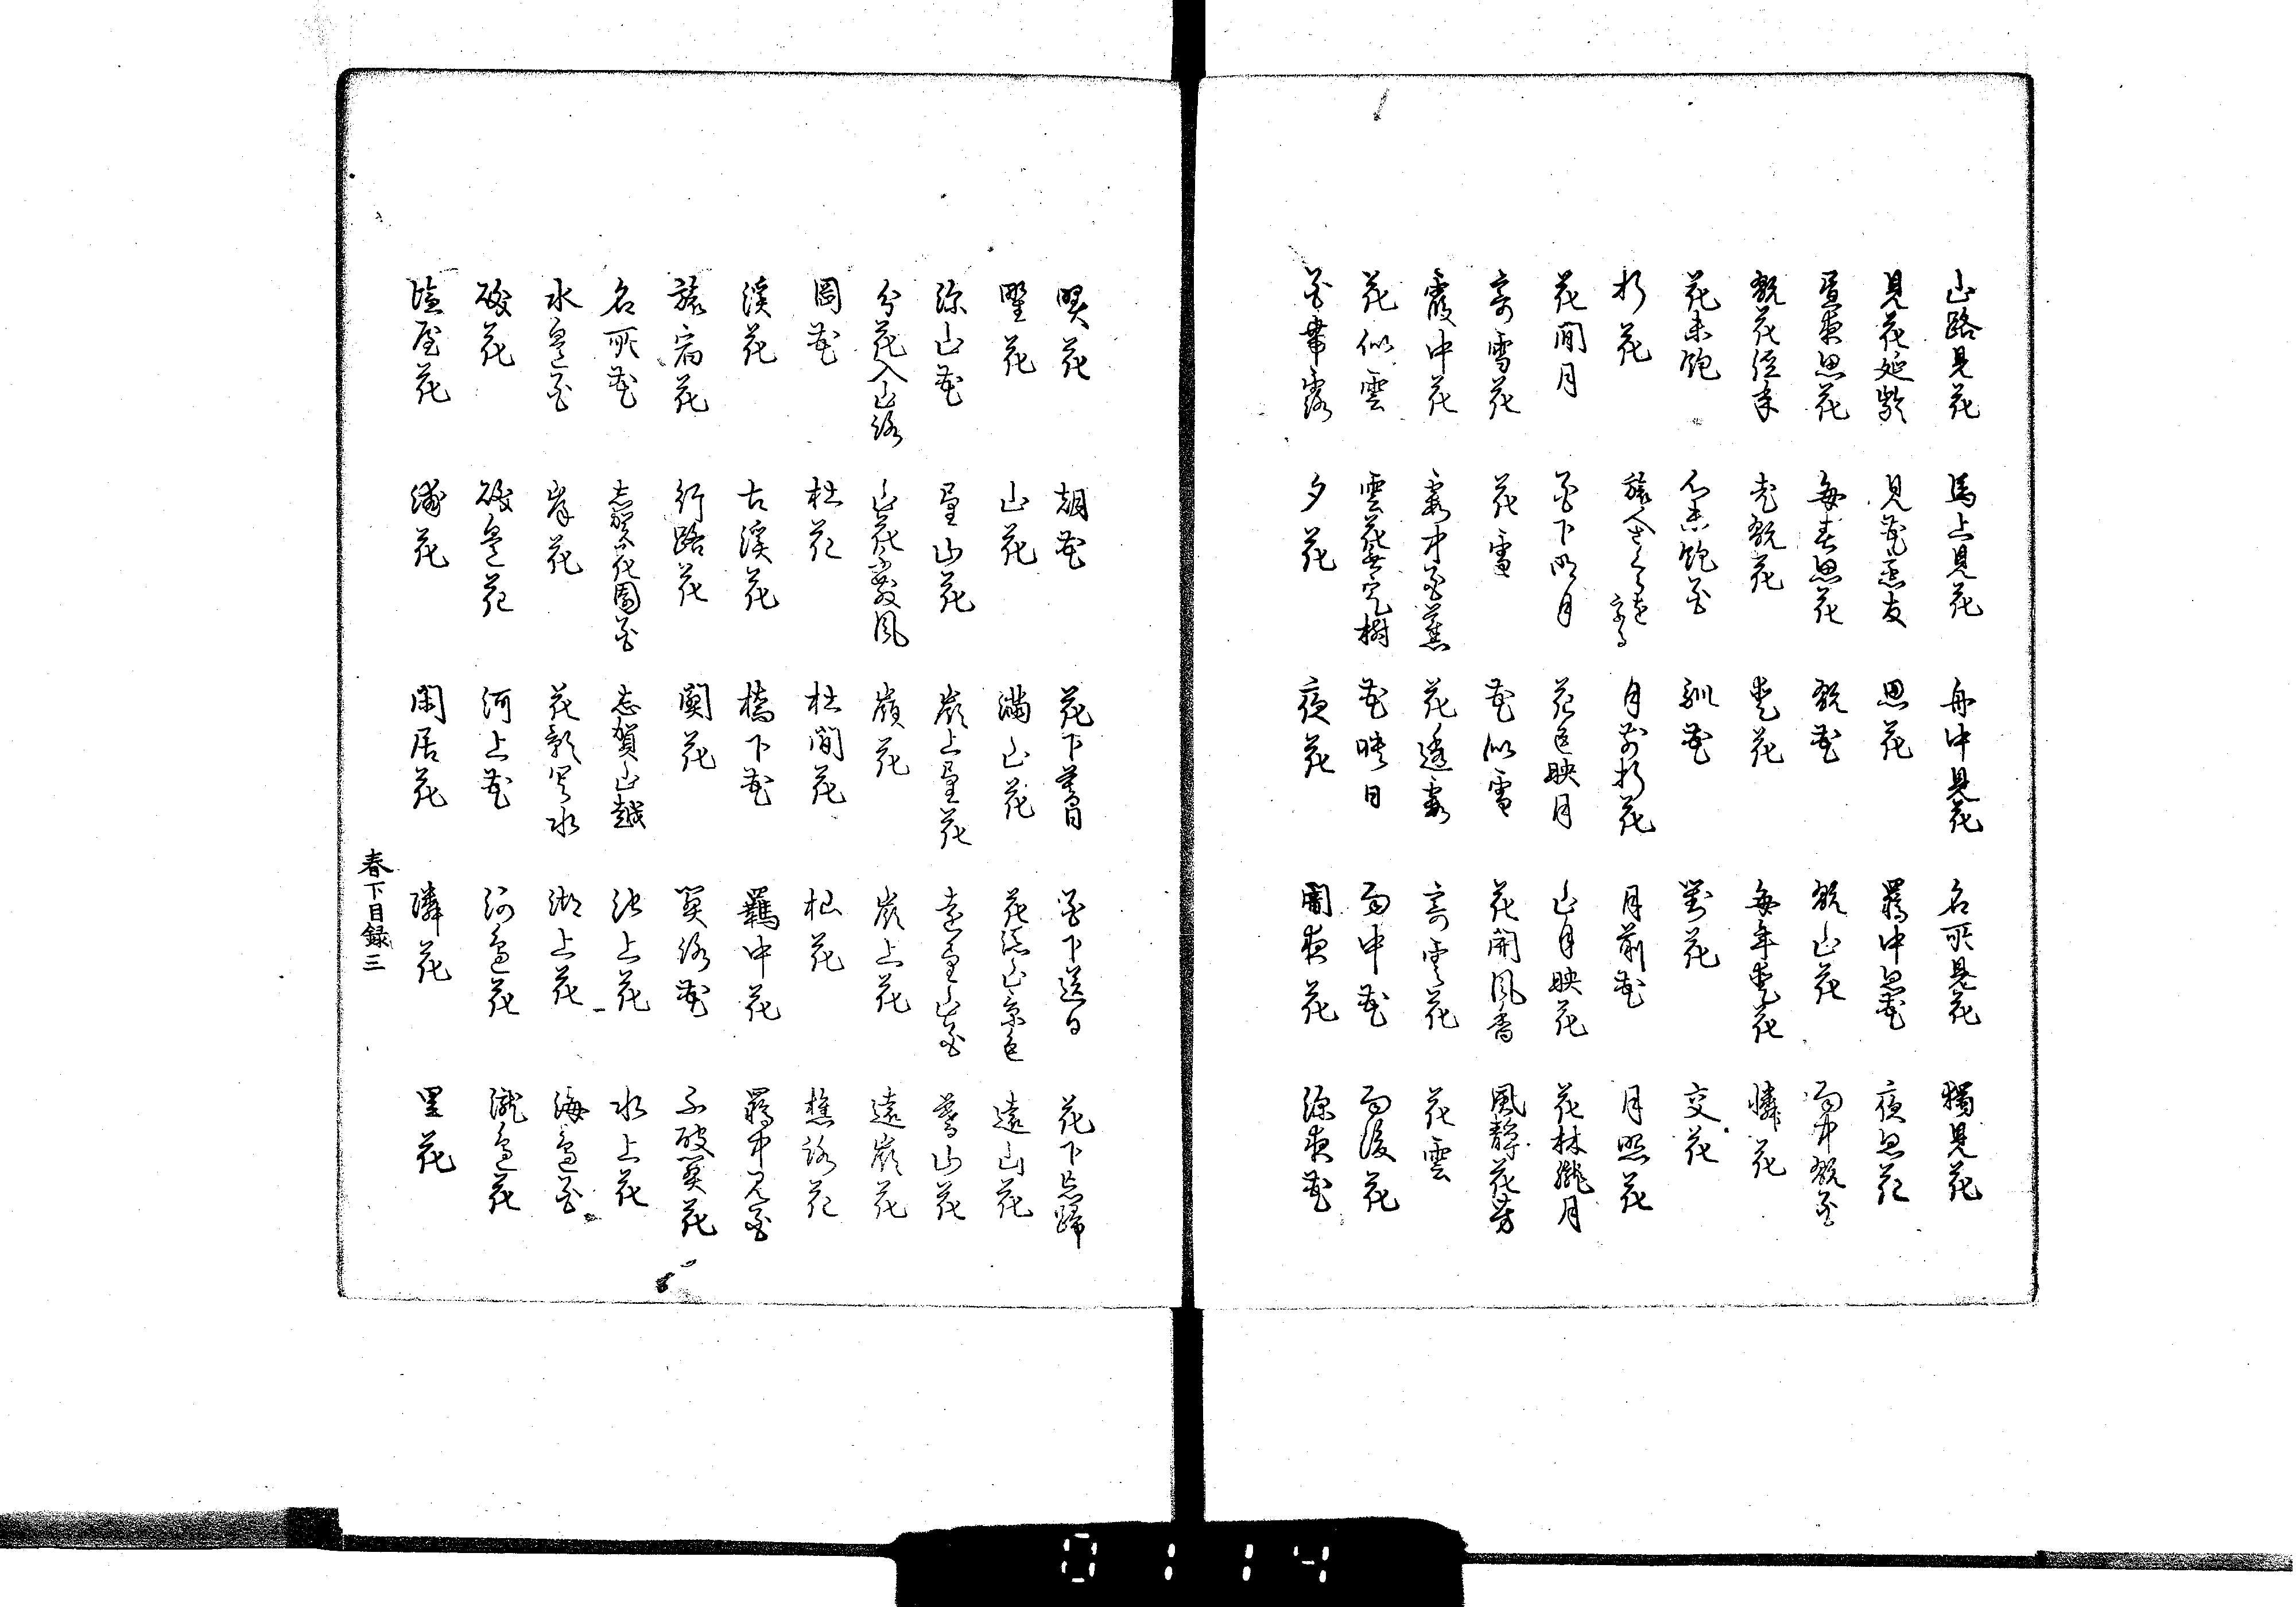 山路見花 馬上見花 舟中見花 名所見花 獨見花
見花延齢 見花恋友 思花 羇中思花 夜思花
昼夜思花 毎春思花 翫花 翫山花 雨中翫花
翫花経年 老翫花 愛花 毎年愛花 憐花
花未飽 心未飽花 馴花 対花 交花
折花 月前折花 月前花 月照花
花間月 花下明月 花色映月 山月映花 花林朧月
寄雪花 花雪 花似雪 花開風香 風静花芳
霞中花 霞中花薫 花透霞 寄雲花 花雲
花似雲 雲花無定樹 花映日 雨中花 雨後花
花帯露 夕花 夜花 闇夜花 深夜花
暁花 朝花 花下暮日 花下送日 花下忘帰
野花 山花 満山花 花添山景色 遠山花
深山花 疊山花 嶺上疊花 遠疊山花 春山花
分花入山路 山花不厭風 嶺花 嶺上花 遠嶺花
岡花 杜花 杜間花 杣花 樵路花
渓花 古渓花 橋下花 羇中花 羇中見花
旅宿花 行路花 関花 関路花 不破関花
名所花 志賀花園花 志賀山越 池上花 水上花
水邊花 岸花 花影写水 湖上花 海邊花
磯花 磯邊花 河上花 河邊花 瀧邊花
塩屋花 浦花 閑居花 隣花 里花
春下目録 三
0114